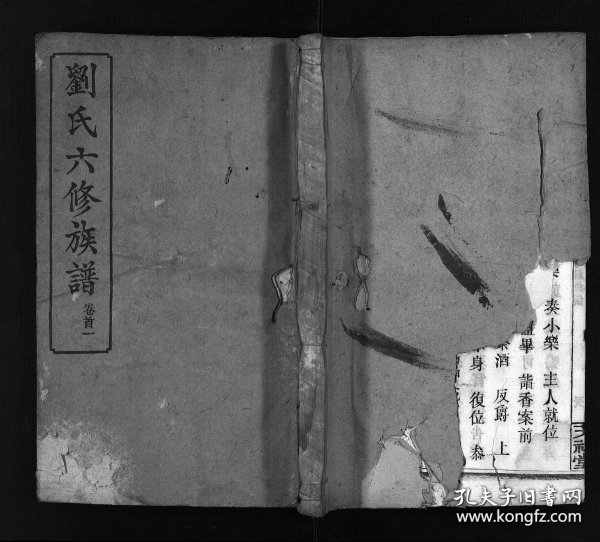 劉氏六修族譜
卷首一
奏小樂 主人就位
盥畢 詣香案前
酒 反爵 上
身 復位
孔夫子旧书网
www.kongfz.com